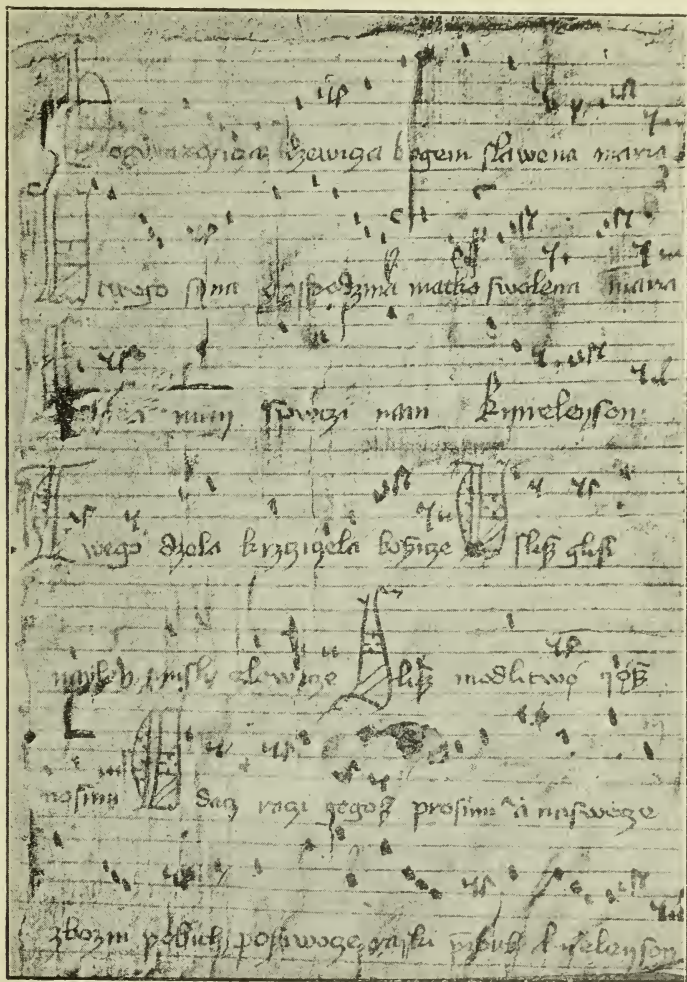 ogurodzicza dzewicza bogem slawena maria
twego syna gospodzina matko swolena maria
nam spwczi nam Kyrieleyson
wego dzela krzcziczela bozicze slisz glosi
misli czlowecze lisz modlitwø yøsz
nosimi dacz raczi gegosz prosimi a naswecze
zbozni pobith posziwocze kyrieleyson